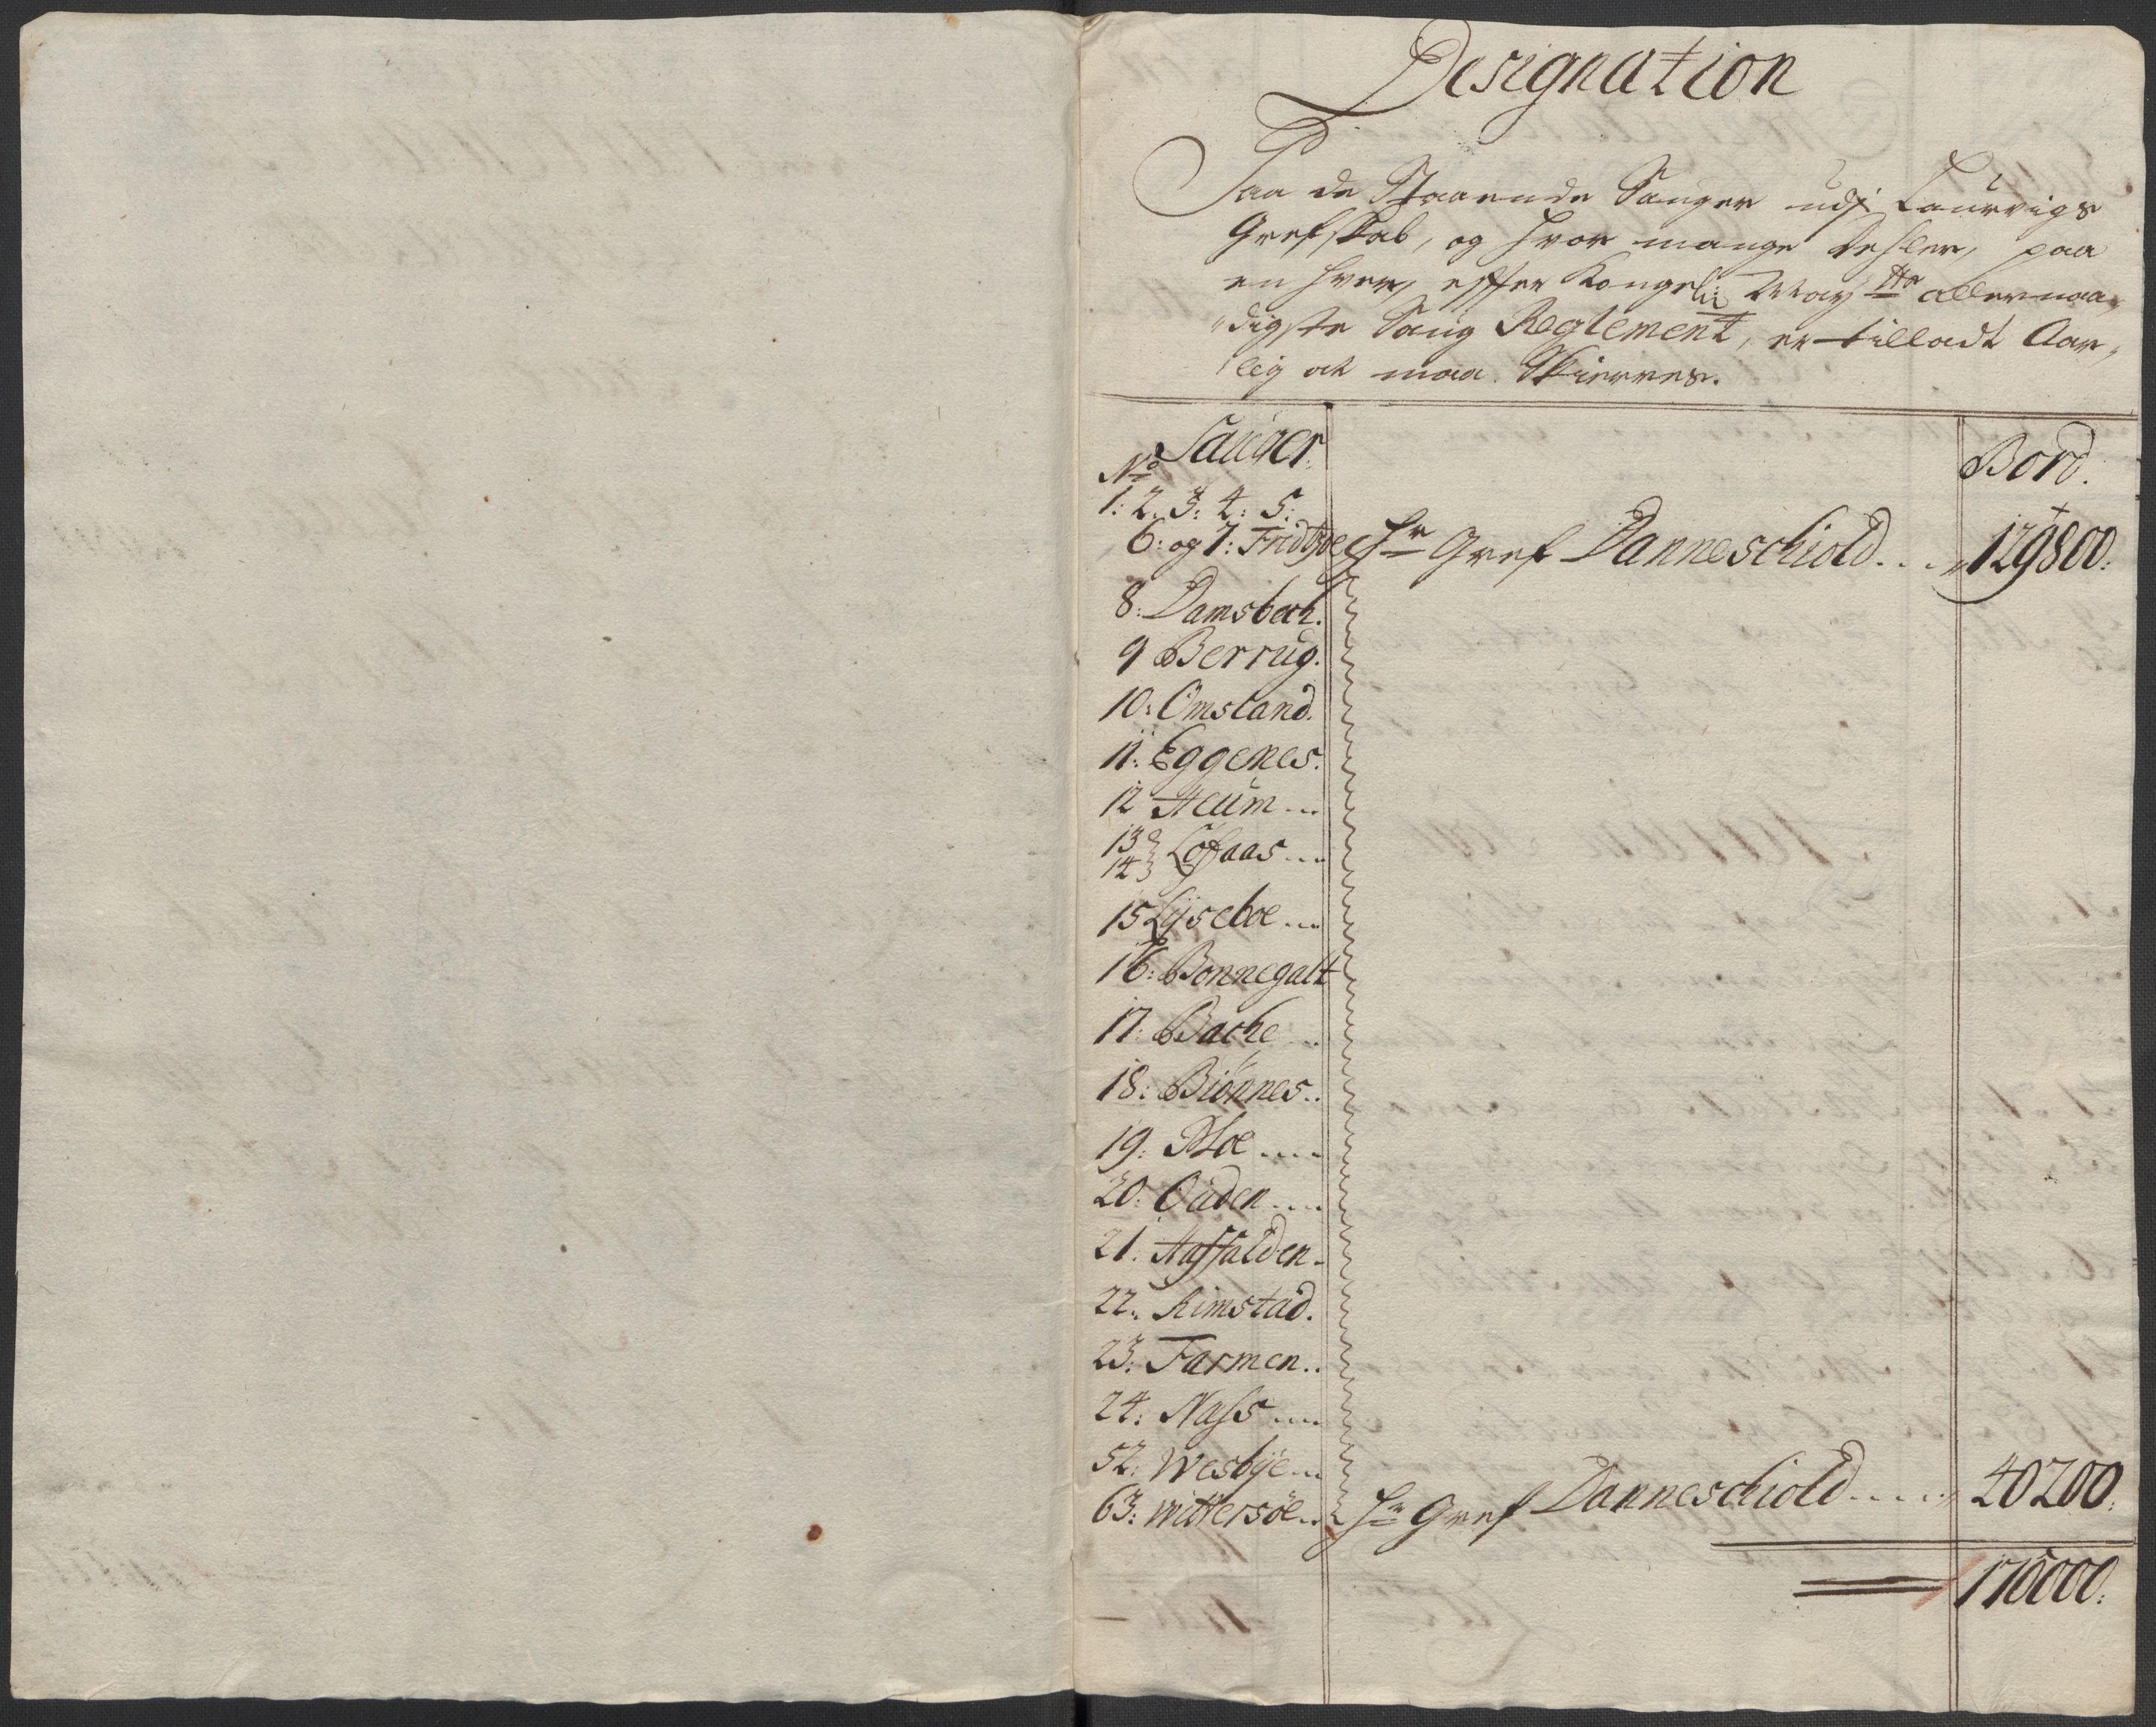 Designation
Paa de Staaende Sauger udj Laurvigs
Grefskab, og hvor mange Dehler, paa
en hver, effter Kongeli: May.tts allernaa„
„digste Saug Reglement, er tilladt Aar„
lig at maa Skierres.
Sauger. Bord.
No
1: 2. 3: 4: 5:
6: og 7: Fridtzøe Hr Gref Danneschiold.... 129800.
8: Damsbech.
9 Berrug.
10: Omsland.
11: Eggenes.
12 Heum...
13
14 Løfaas...
15 Lyseboe...
16: Bonnegalt
17: Bache...
18: Biønnes..
19: Moe....
20: Ouden....
21. Haffalden.
22. Rimstad.
23. Farmen..
24: Næss....
52: Wesbye...
63: Wittersøe... Hr Gref Danneschiold..... 40200.
170000.